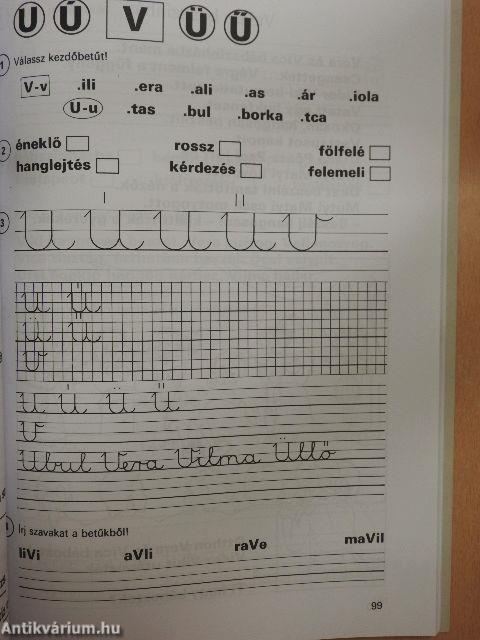 Ú Ű V Ü Ű
1 Válassz kezdőbetűt!
V-v .ili .era .ali .as .ár .iola
U-u .tas .bul .borka .tca
2 éneklő rossz fölfelé
hanglejtés kérdezés felemeli
3 U Ú U Ű V
U Ú
Ü Ű
V
U Ú Ü Ű
V
Ubul Vera Vilma Üllő
Írj szavakat a betűkből!
liVi aVli raVe maVil
99
Antikvárium.hu